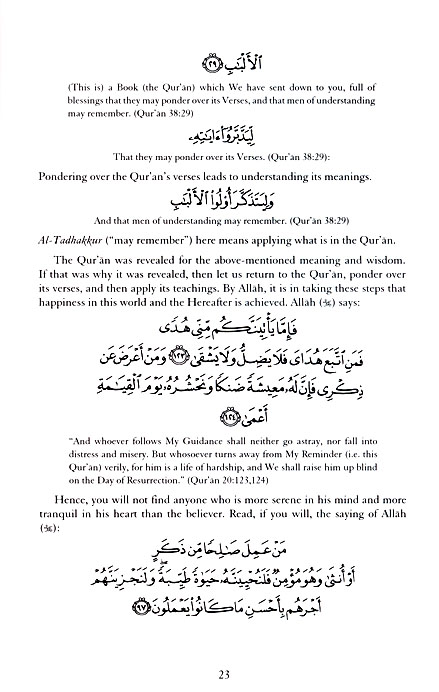 ٱلۡأَلۡبَٰبِ ٢٩
(This is) a Book (the Qur'ān) which We have sent down to you, full of
blessings that they may ponder over its Verses, and that men of understanding
may remember. (Qur'ān 38:29)
لِّيَدَّبَّرُوٓاْ ءَايَٰتِهِۦ
That they may ponder over its Verses. (Qur'ān 38:29):
Pondering over the Qur'an's verses leads to understanding its meanings.
وَلِيَتَذَكَّرَ أُوْلُواْ ٱلۡأَلۡبَٰبِ
And that men of understanding may remember. (Qur'ān 38:29)
Al-Tadhakkur ("may remember") here means applying what is in the Qur'ān.
The Qur'ān was revealed for the above-mentioned meaning and wisdom.
If that was why it was revealed, then let us return to the Qur'ān, ponder over
its verses, and then apply its teachings. By Allāh, it is in taking these steps that
happiness in this world and the Hereafter is achieved. Allāh (ﷻ) says:
فَإِمَّا يَأۡتِيَنَّكُم مِّنِّي هُدٗى
فَمَنِ ٱتَّبَعَ هُدَايَ فَلَا يَضِلُّ وَلَا يَشۡقَىٰ ١٢٣ وَمَنۡ أَعۡرَضَ عَن
ذِكۡرِي فَإِنَّ لَهُۥ مَعِيشَةٗ ضَنكٗا وَنَحۡشُرُهُۥ يَوۡمَ ٱلۡقِيَٰمَةِ
أَعۡمَىٰ ١٢٤
"And whoever follows My Guidance shall neither go astray, nor fall into
distress and misery. But whosoever turns away from My Reminder (i.e. this
Qur'ān) verily, for him is a life of hardship, and We shall raise him up blind
on the Day of Resurrection." (Qur'ān 20:123,124)
Hence, you will not find anyone who is more serene in his mind and more
tranquil in his heart than the believer. Read, if you will, the saying of Allāh
(ﷻ):
مَنۡ عَمِلَ صَٰلِحٗا مِّن ذَكَرٍ
أَوۡ أُنثَىٰ وَهُوَ مُؤۡمِنٞ فَلَنُحۡيِيَنَّهُۥ حَيَوٰةٗ طَيِّبَةٗۖ وَلَنَجۡزِيَنَّهُمۡ
أَجۡرَهُم بِأَحۡسَنِ مَا كَانُواْ يَعۡمَلُونَ ٩٧
23